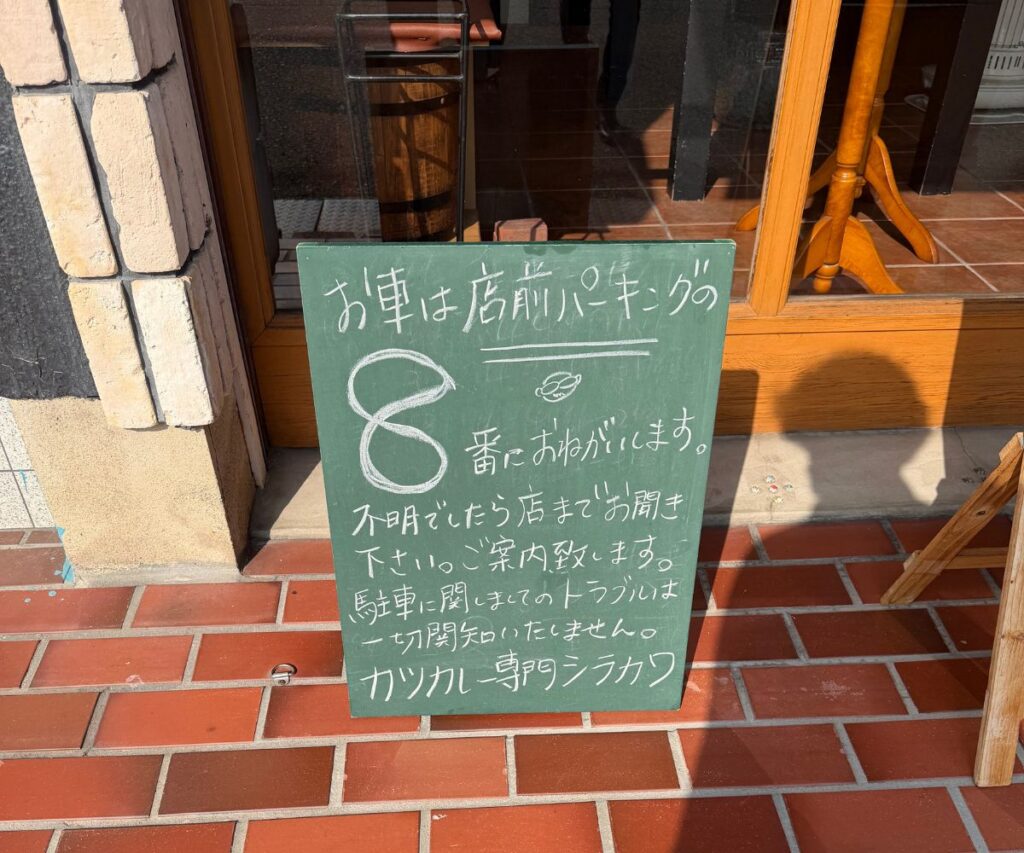 お車は店前パーキングの
8
番におねがいします。
不明でしたら店までお聞き
下さい。ご案内致します。
駐車に関しましてのトラブルは
一切関知いたしません。
カツカレー専門シラカワ